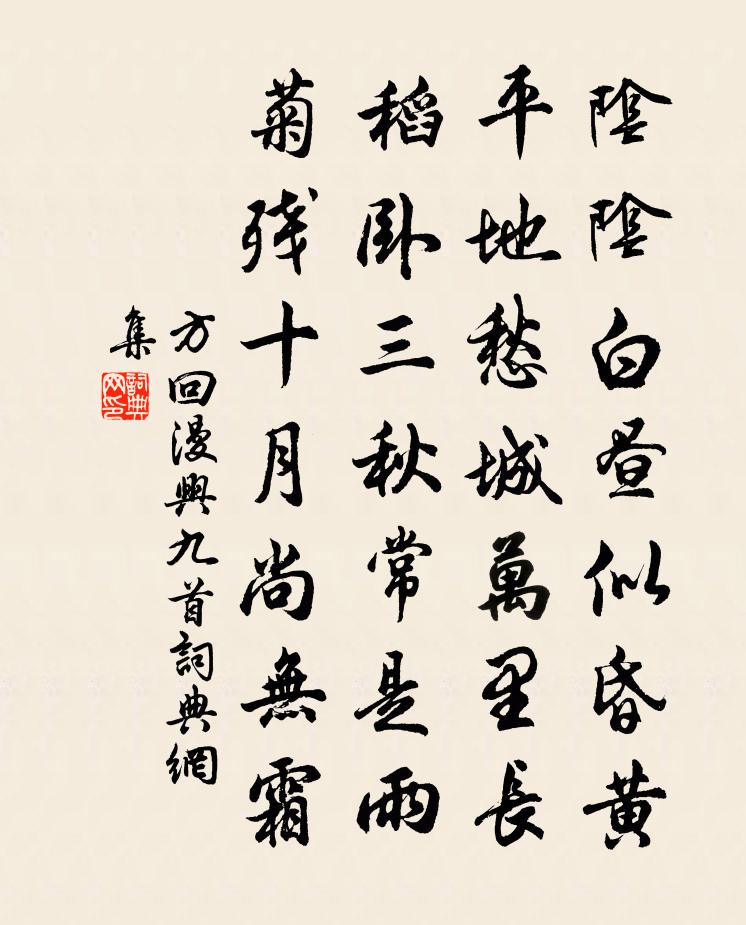 陰陰白昼似昏黃
平地愁城萬里長
稻卧三秋常是雨
菊残十月尚無霜
方回漫興九首詞典網
集
詞典网印